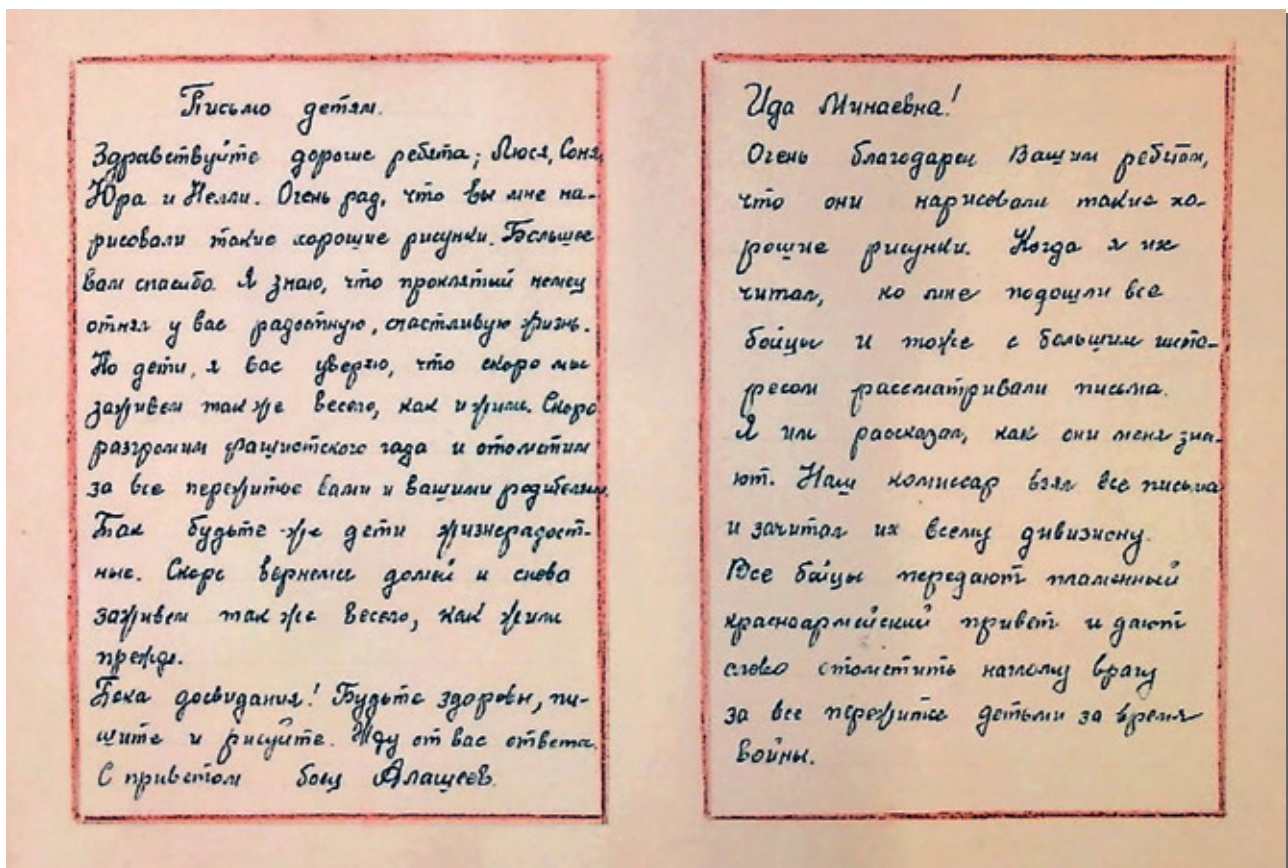 Письмо детям.
Здравствуйте дорогие ребята; Люся, Соня,
Юра и Нелли. Очень рад, что вы мне на-
рисовали такие хорошие рисунки. Большое
вам спасибо. Я знаю, что проклятый немец
отнял у вас радостную, счастливую жизнь.
Но дети, я вас уверяю, что скоро мы
заживем так же весело, как и жили. Скоро
разгромим фашистского гада и отомстим
за все пережитое вами и вашими родителями.
Так будьте же дети жизнерадост-
ные. Скоро вернемся домой и снова
заживем так же весело, как жили
прежде.
Пока досвидания! Будьте здоровы, пи-
шите и рисуйте. Жду от вас ответа.
С приветом боец Алащеев.
Ида Минаевна!
Очень благодарен Вашим ребятам,
что они нарисовали такие хо-
рошие рисунки. Когда я их
читал, ко мне подошли все
бойцы и тоже с большим инте-
ресом рассматривали письма.
Я им рассказал, как они меня зна-
ют. Наш комиссар взял все письма
и зачитал их всему дивизиону.
Все бойцы передают пламенный
красноармейский привет и дают
слово отомстить наглому врагу
за все пережитое детьми за время
войны.